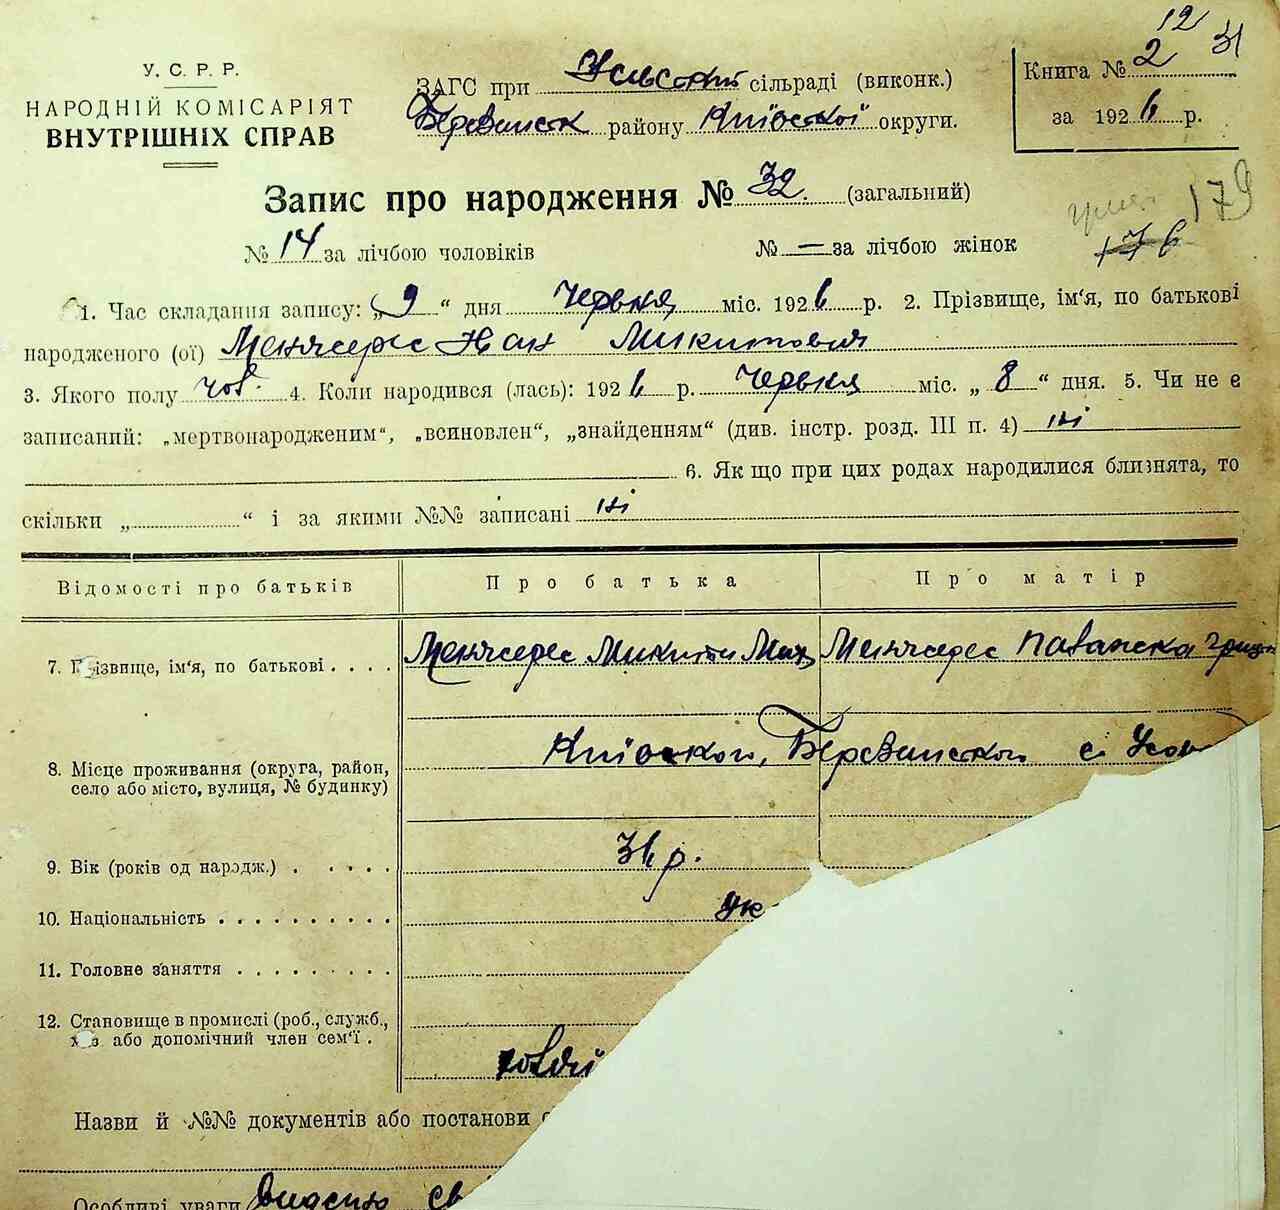 12
31
У. С. Р. Р.
НАРОДНІЙ КОМІСАРІЯТ
ВНУТРІШНІХ СПРАВ
ЗАГС при сільраді (виконк.)
району Київської округи.
Книга № 2
за 1926 р.
Запис про народження № 32. (загальний)
179
176
№ 14 за лічбою чоловіків № — за лічбою жінок
1. Час складання запису: „9“ дня Червня міс. 1926 р. 2. Прізвище, ім‘я, по батькові
народженого (ої) Микитовия
3. Якого полу чов. 4. Коли народився (лась): 1926 р. Червня міс. „8“ дня. 5. Чи не є
записаний: „мертвонародженим“, „всиновлен“, „знайденням“ (див. інстр. розд. III п. 4) ні
6. Як що при цих родах народилися близнята, то
скільки „ “ і за якими №№ записані ні
Відомості про батьків Про батька Про матір
7. Прізвище, ім‘я, по батькові . . . . Микити Мих
8. Місце проживання (округа, район, село або місто, вулиця, № будинку) с.
9. Вік (років од народж.) . . . . . 36 р.
10. Національність . . . . . . . . . . Ук
11. Головне заняття . . . . . . . . .
12. Становище в промислі (роб., служб.,
або допомічний член сем‘ї .
Назви й №№ документів або постанови
Особливі уваги Видано